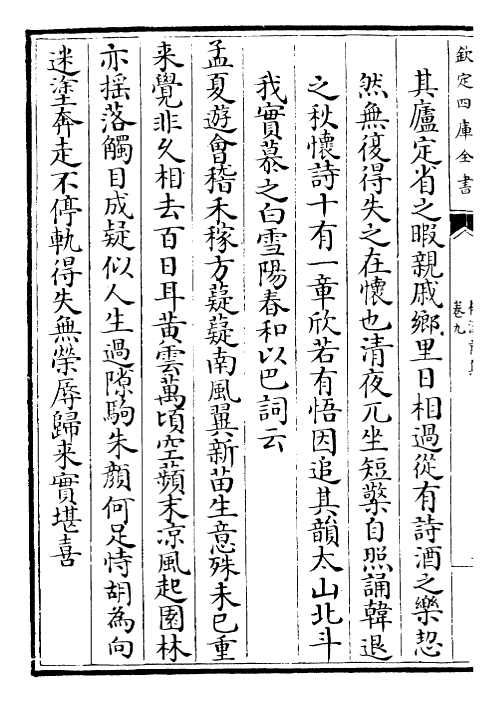 欽定四庫全書
卷九
其廬定省之暇親戚鄉里日相過從有詩酒之樂恝
然無復得失之在懷也清夜兀坐短檠自照誦韓退
之秋懷詩十有一章欣若有悟因追其韻太山北斗
我實慕之白雪陽春和以巴詞云
孟夏遊會稽禾稼方薿薿南風翼新苗生意殊未已重
来覺非久相去百日耳黄雲萬頃空蘋末凉風起園林
亦揺落觸目成疑似人生過隙駒朱顔何足恃胡為向
迷塗奔走不停軌得失無榮辱歸来實堪喜